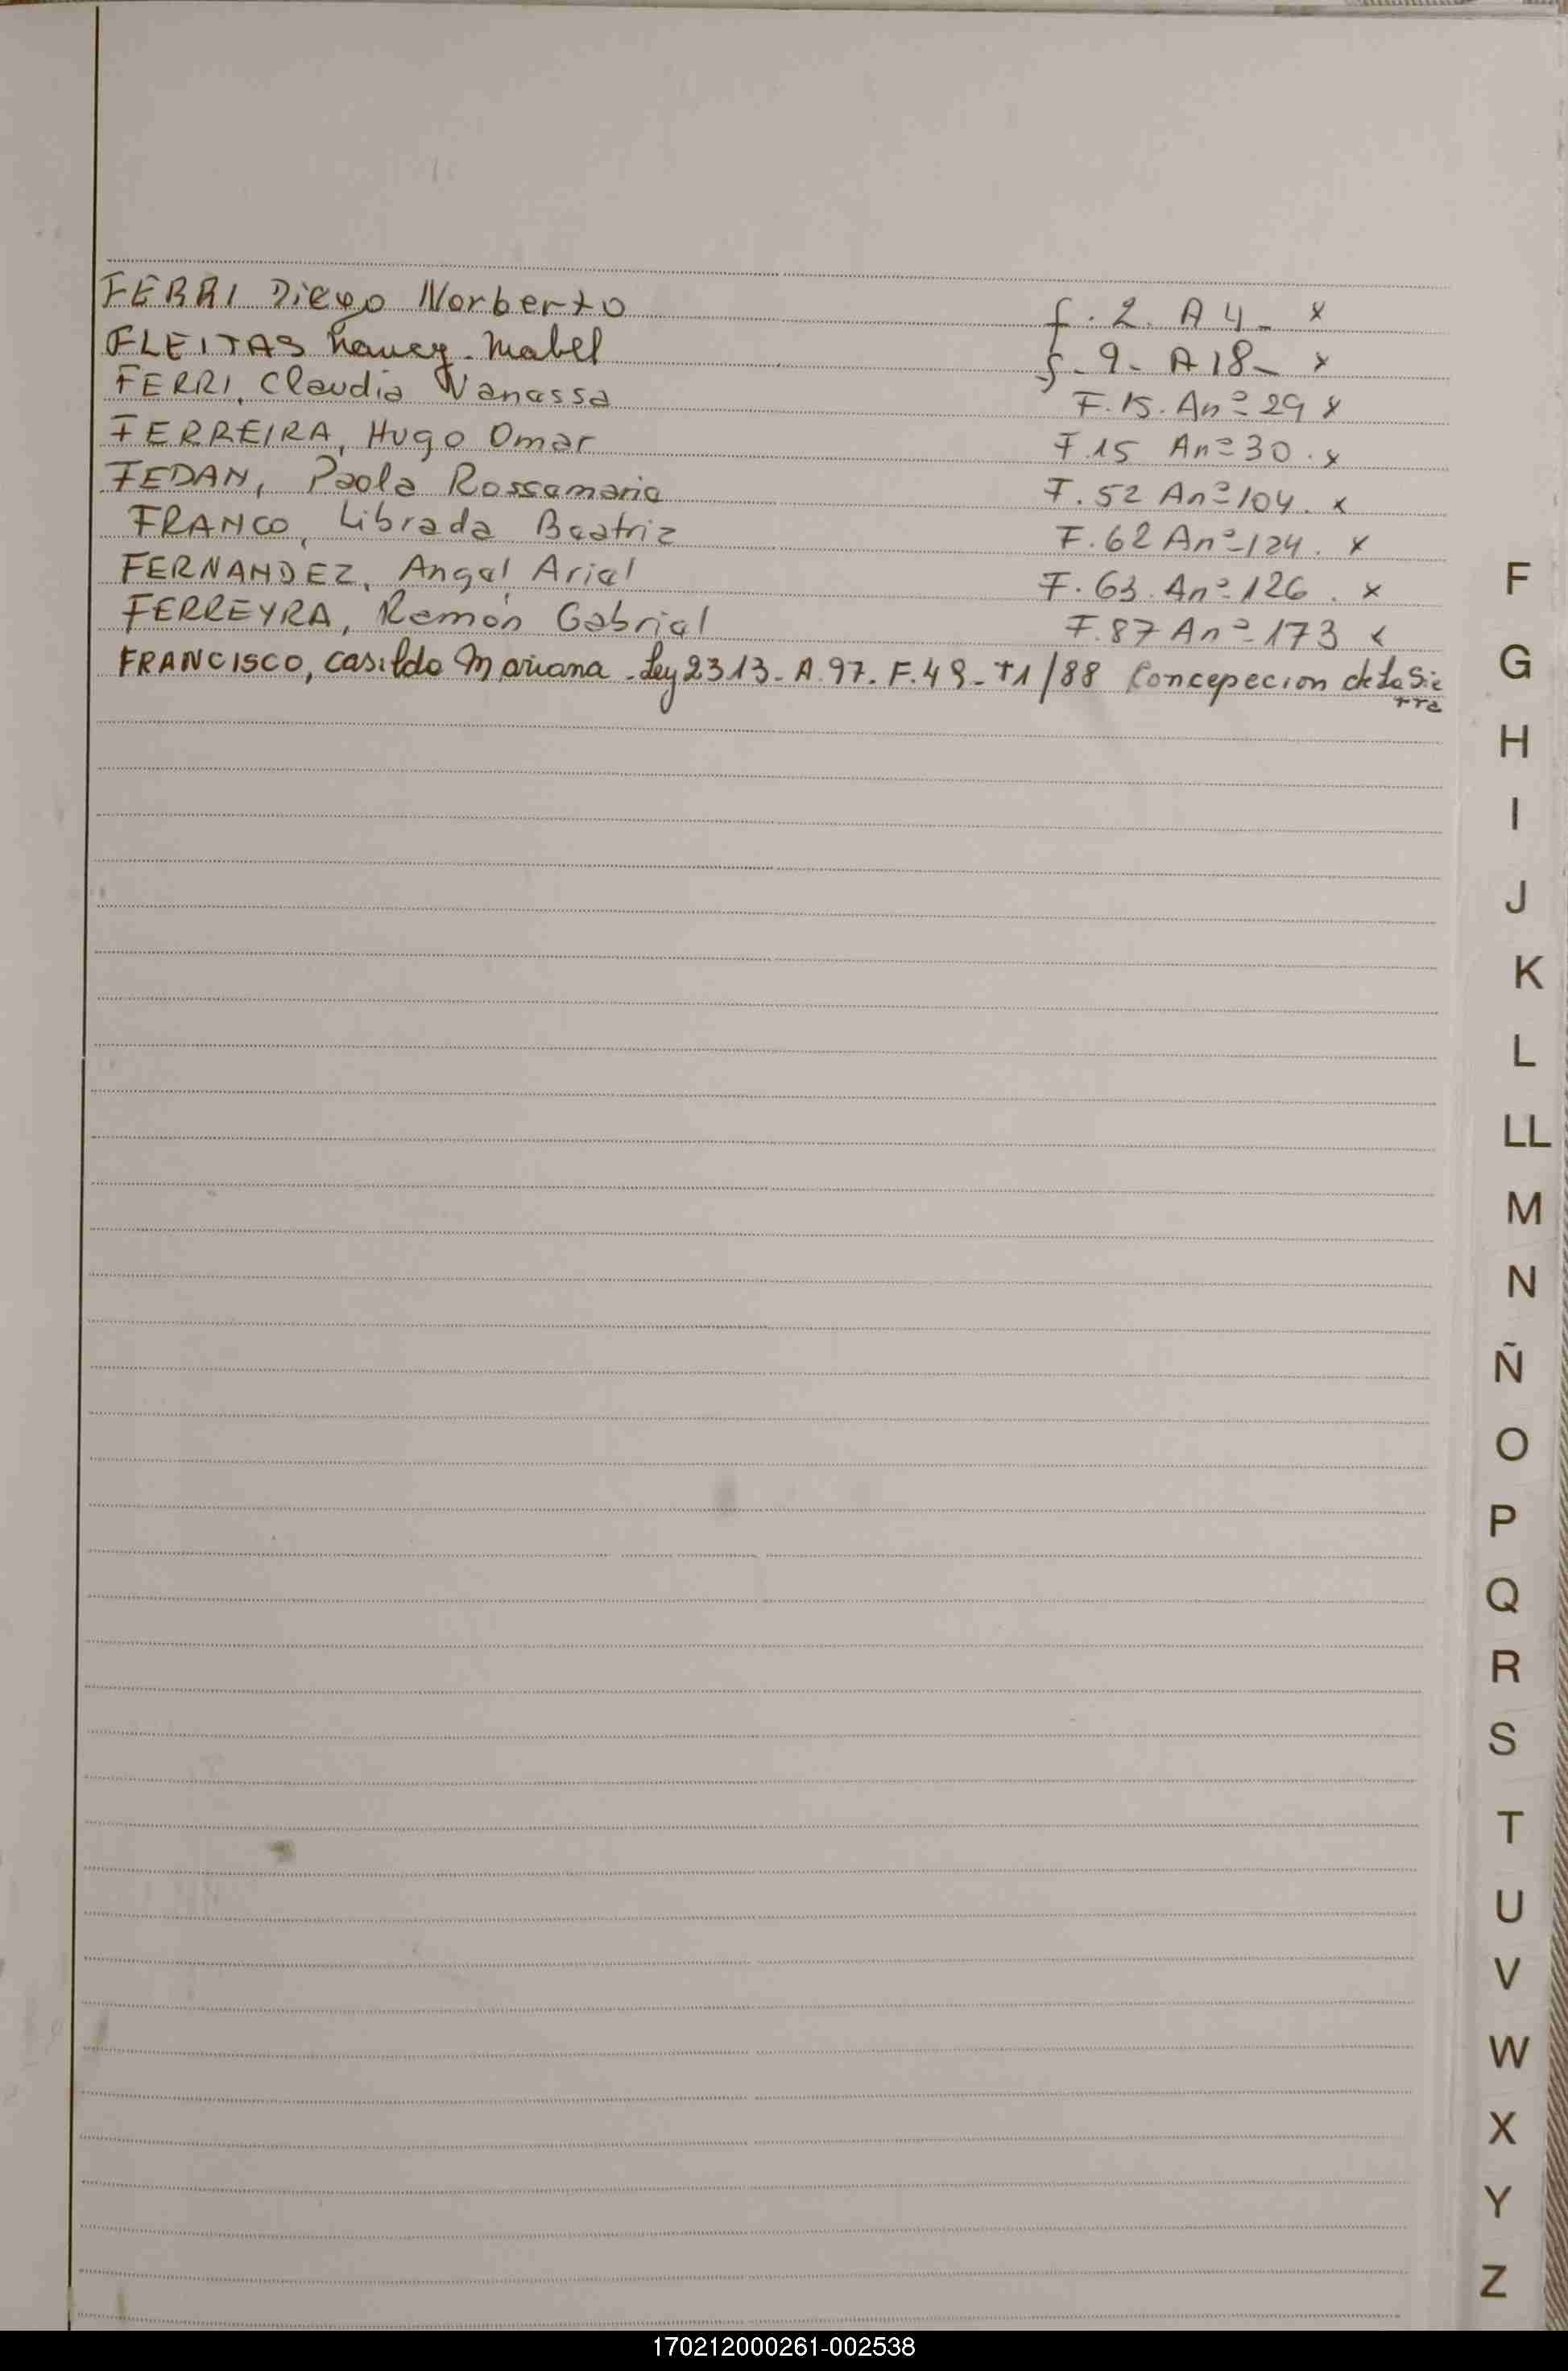 FERRI Diego Norberto f. 2. A 4- x
FLEITAS Nancy- Mabel f- 9- A 18- x
FERRI, Claudia Vanessa F. 15. An° 29 x
FERREIRA, Hugo Omar F. 15 An° 30. x
FEDAN, Paola Rossemarie F. 52 An° 104. x
FRANCO, Librada Beatriz F. 62 An° 124. x
FERNANDEZ, Angel Ariel F. 63. An° 126. x
FERREYRA, Ramón Gabriel F. 87 An° 173 x
FRANCISCO, Casildo Mariana - Ley 2313- A. 97. F. 49- T1/88 Concepecion de La Sie
rra
F
G
H
I
J
K
L
LL
M
N
Ñ
O
P
Q
R
S
T
U
V
W
X
Y
Z
170212000261-002538